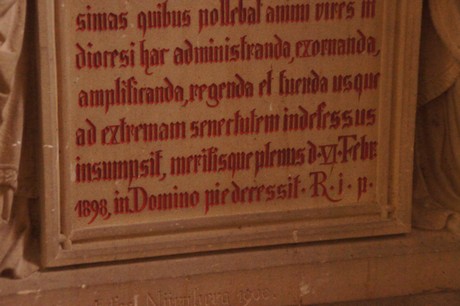 simas quibus pollebat animi vires in
dioresi hac administranda, exornanda,
amplificanda, regenda et tuenda usque
ad extremam senectutem indefessus
insumpsit, meritisque plenus d. VI. Febr.
1898, in Domino pie decessit. R. i. p.
Nürnberg